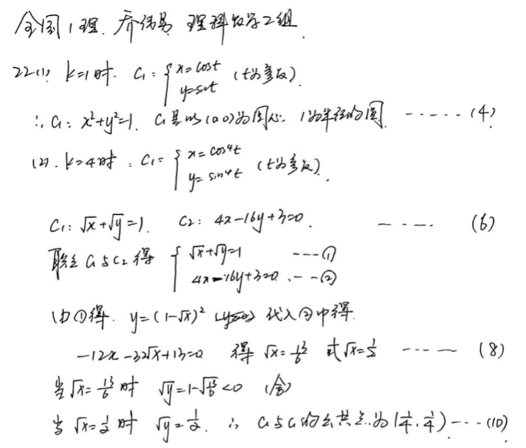 全国1理. 乔伟男 理科数学2组.
22(1). k=1时. C₁: { x=cost y=sint (t为参数).
∴ C₁: x²+y²=1. C₁是以(0,0)为圆心. 1为半径的圆. ······ (4)
(2). k=4时. C₁: { x=cos⁴t y=sin⁴t (t为参数).
C₁: √x+√y=1. C₂: 4x-16y+3=0. - - - - (6)
联立C₁与C₂得 { √x+√y=1 ---① 4x-16y+3=0 ---②
由①得. y=(1-√x)² 代入②中得.
-12x-32√x+13=0 得 √x=13/6 或√x=1/2 ---- (8)
当√x=13/6时 √y=1-√13/6<0 (舍)
当√x=1/2时 √y=1/2. ∴ C₁与C₂的公共点为(1/4, 1/4) --- (10)